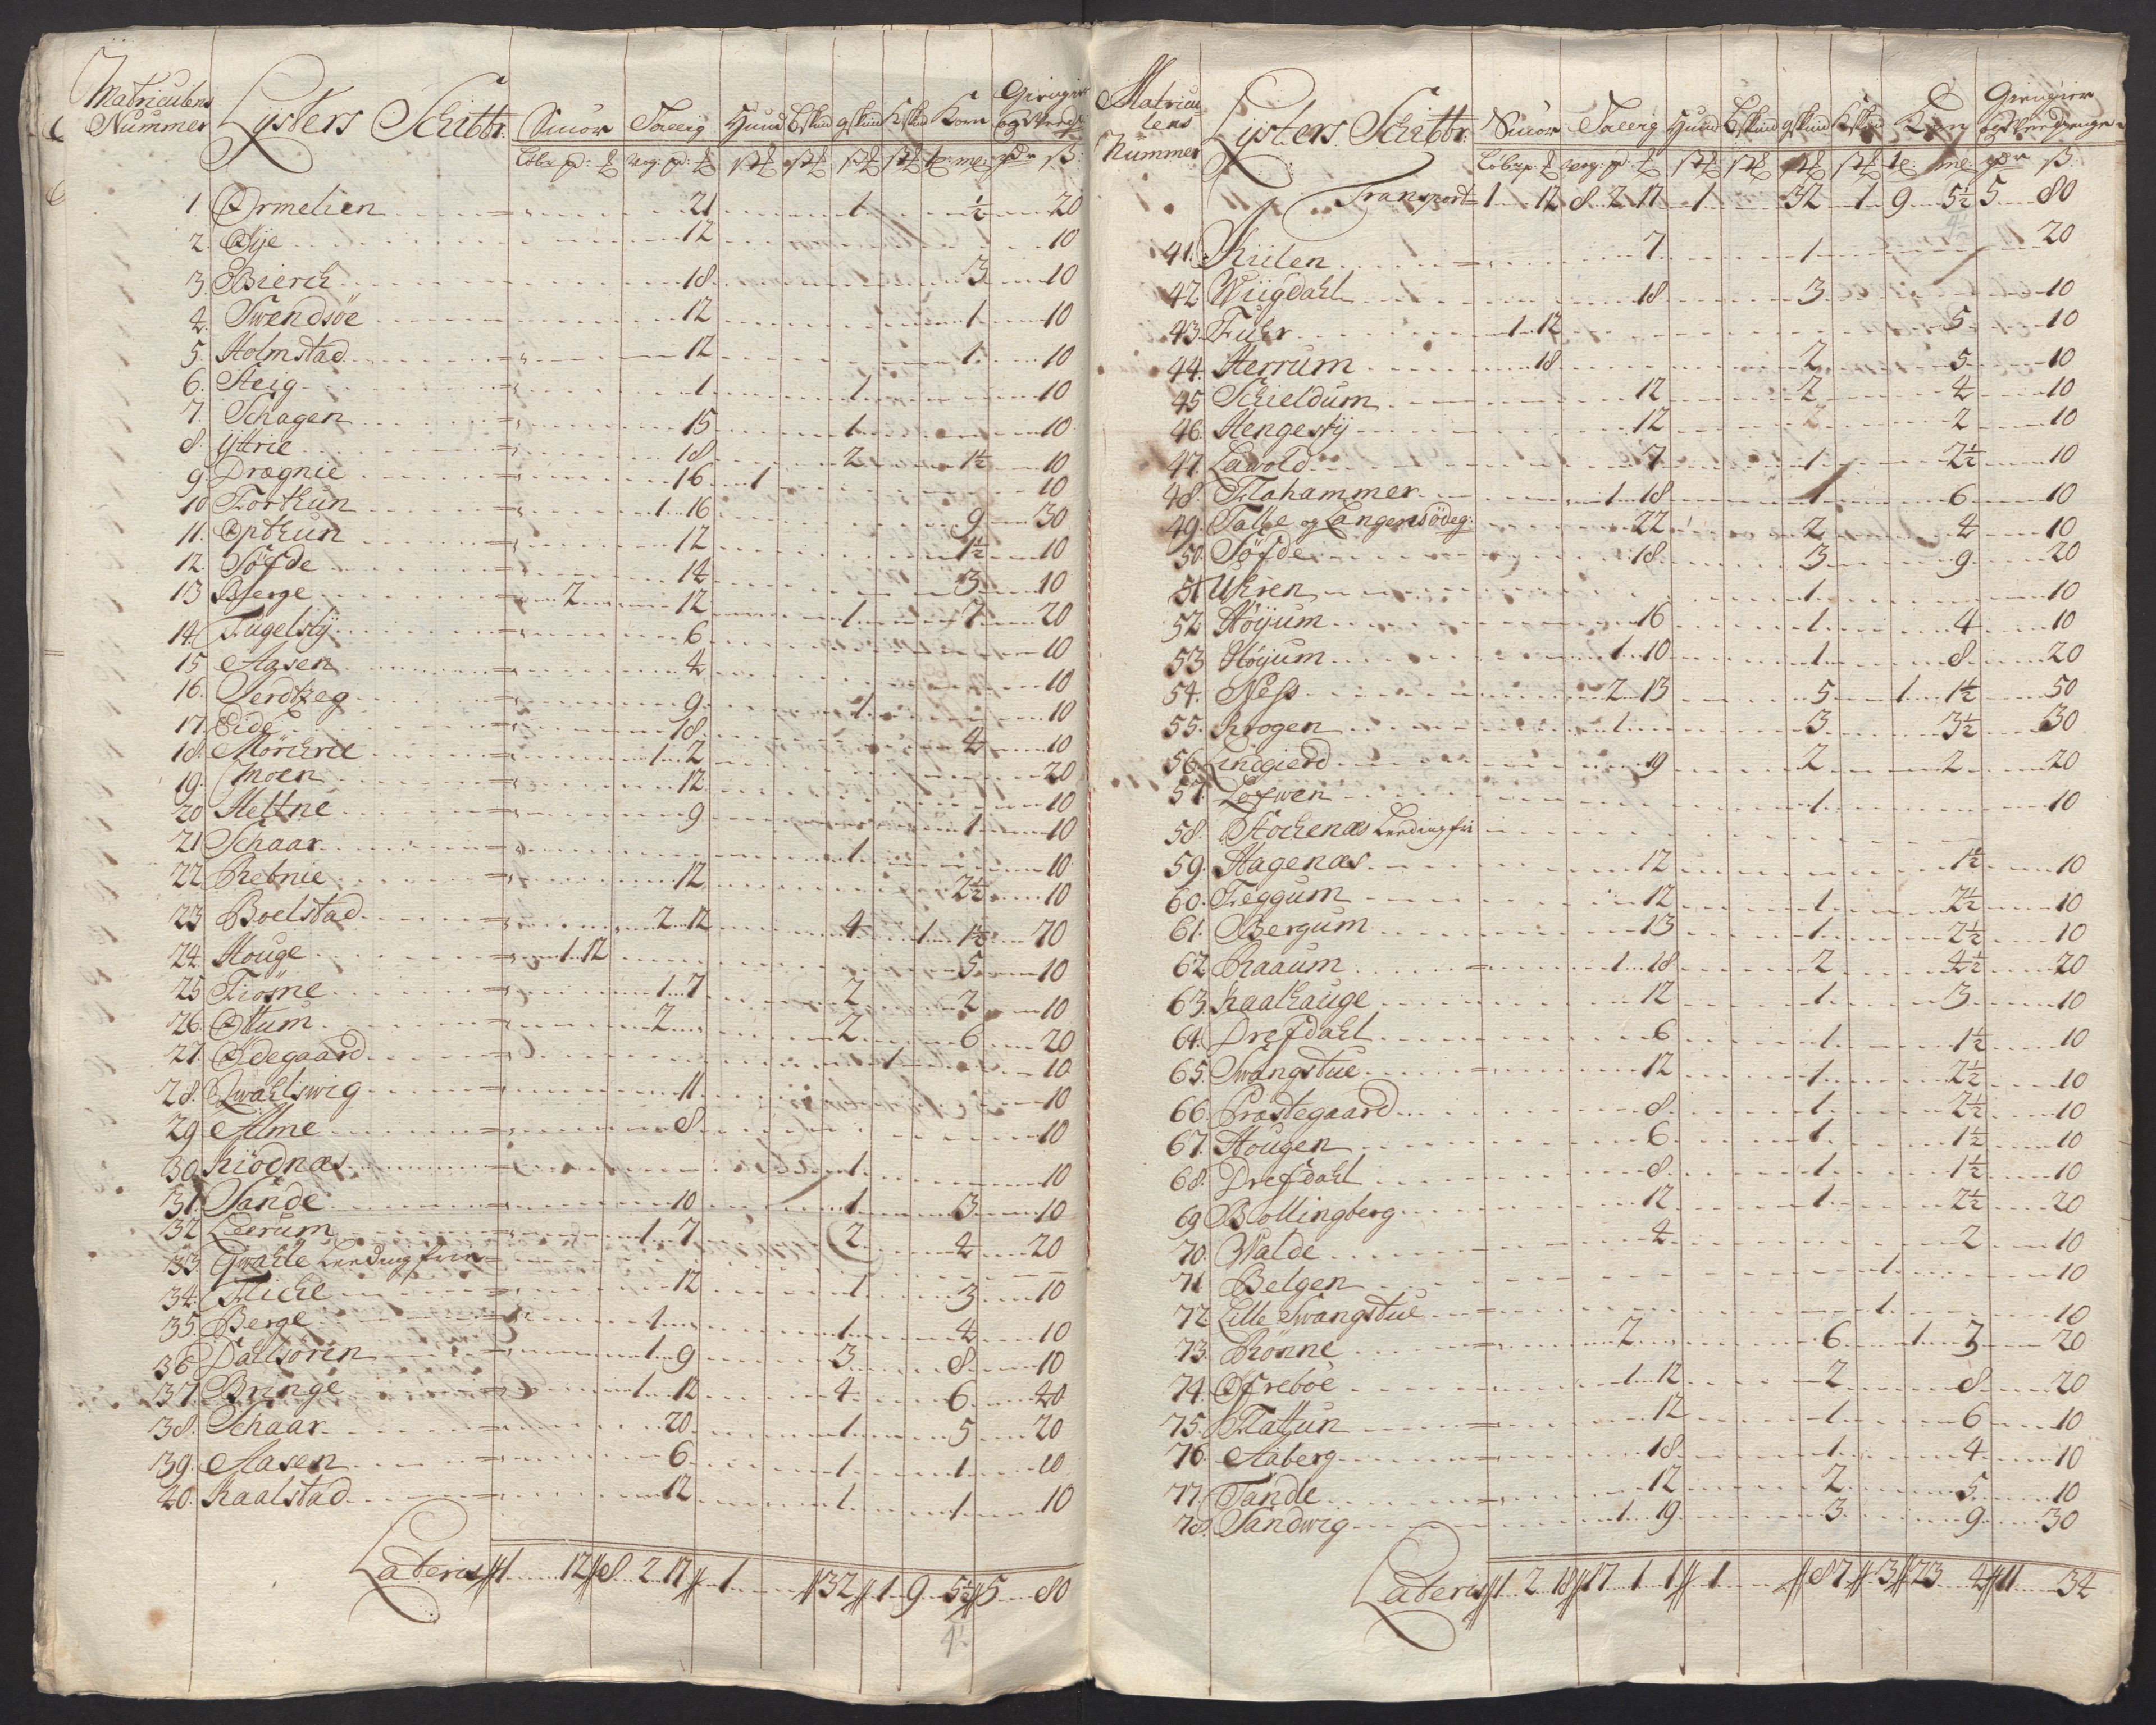 Matriculens Nummer Lysters Schibbr. Smør Talleg Huud Bskind gskind Kskind Korn Giengier og Werd
1 Ormelien 21 1 ½ 20
2. Øije 12 10
3. Bierch 18 3 10
4. Svendsöe 12 1 10
5. Holmstad 12 1 10
6. Steig 1 1 10
7. Schagen 15 1 10
8. Yttrie 18 2 1½ 10
9. Drægnie 16 1 10
10 Forthun 1 16 9 30
11. Opthun 12 1½ 10
12. Söfde 14 3 10
13 Berge 2 12 1 7 20
14. Fugelsty 6 10
15 Aasen 4 10
16. 9 1 10
17. Eide 18 4 10
18. Mörchrie 1 2 20
19. Moen 12 10
20 Hettne 9 1 10
21 Schaar 1 10
22 Rebnie 12 2½ 10
23 Boelstad 2 12 4 1 1½ 70
24. Houge 1 12 5 10
25 Fiösne 1 7 2 2 10
26. Ottum 2 2 6 20
27. Ødegaard 1 10
28. Qwahlswig 11 10
29. Alme 8 10
30. Kiödnæs 1 10
31. Sande 10 1 3 10
32 Leerum 1 7 2 4 20
33 Gwahle Leeding frie
34. Fliche 12 1 3 10
35. Berge 1 1 4 10
36 Dahlsören 1 9 3 8 10
37. Bringe 1 12 4 6 40
38. Schaar 20 1 5 20
39. Aasen 6 1 1 10
40. Kaalstad 12 1 1 10
Lateris 1 12 8 2 17 1 32 1 9 5½ 5 80
4½
Matriculens Nummer Lysters Schibbr Smør Talleg Huud Bskind gskind Kskind Korn Giengier og Werdpenge
Transport 1 12 8 2 17 1 32 1 9 5½ 5 80
41. Kiilen 7 1 20
42. Wiigdahl 18 3 10
43. Fuhr 1 12 5 10
44. Herrum 18 2 5 10
45 Schieldum 12 2 4 10
46. Hengesty 12 2 2 10
47. Lawold 7 1 2½ 10
48. Flahammer 1 18 1 6 10
49. Talle og Langens ödeg: 22 2 4 10
50. Söfde 18 3 9 20
51. Uhren 1 10
52. Höyum 16 1 4 10
53. Höyum 1 10 1 8 20
54. Ness 2 13 5 1 1½ 50
55. Krogen 1 3 3½ 30
56. Lindgierd 19 2 2 20
57. Lofwen 1 10
58. Stochenæs Leeding fri
59. Hagenæs 12 1½ 10
60. Feggum 12 1 2½ 10
61. Bergum 13 1 2½ 10
62. Raaum 1 18 2 4½ 20
63. Kaalhauge 12 1 3 10
64. Drefdahl 6 1 1½ 10
65. Swangstue 12 1 2½ 10
66. Præstegaard 8 1 2½ 10
67. Hougen 6 1 1½ 10
68. Drefdahl 8 1 1½ 10
69. Bollingberg 12 1 2½ 20
70. Walde 4 2 10
71. Belgen 1 10
72. Lille Swangstue 1 10
73. Rönne 2 6 1 3 20
74. Ofreböe 1 12 2 8 20
75. Flattun 12 1 6 10
76. Aaberg 18 1 4 10
77. Tande 12 2 5 10
78. Sandwig 1 19 3 9 30
Lateris 1 2 18 17 1 1 1 87 3 23 4 11 34